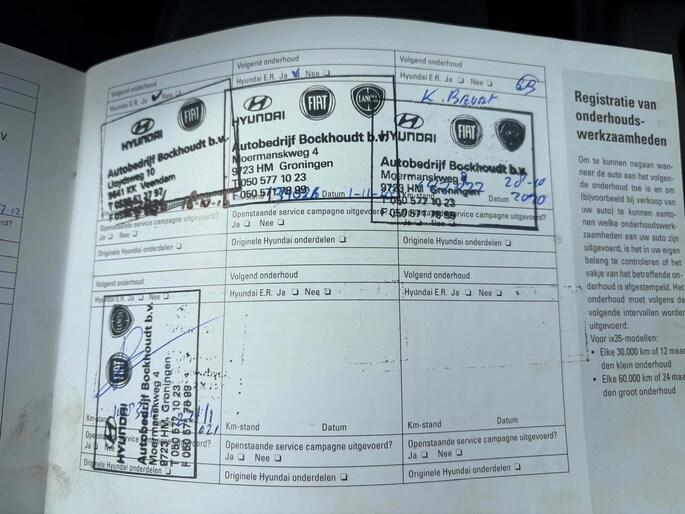 Volgend onderhoud
Hyundai E.R. Ja ✓ Nee
HYUNDAI FIAT
Autobedrijf Bockhoudt b.v.
Lloydsweg 10
9641 KK Veendam
Openstaande service campagne uitgevoerd?
Ja Nee
Originele Hyundai onderdelen
Volgend onderhoud
Hyundai E.R. Ja ✓ Nee
HYUNDAI FIAT LANCIA
Autobedrijf Bockhoudt b.v.
Moermanskweg 4
9723 HM Groningen
T 050 577 10 23
F 050 577 78 99
Datum 1-11-
Openstaande service campagne uitgevoerd?
Ja Nee
Originele Hyundai onderdelen
Volgend onderhoud
Hyundai E.R. Ja Nee
HYUNDAI FIAT
Autobedrijf Bockhoudt b.v.
Moermanskweg
9723 HM Groningen
T 050 577 10 23
F 050 577 78 99
Km-stand
20-10
2020
Datum
Ja Nee
Originele Hyundai onderdelen
Volgend onderhoud
Hyundai E.R. Ja Nee
HYUNDAI FIAT
Autobedrijf Bockhoudt b.v.
Moermanskweg 4
9723 HM Groningen
T 050 577 10 23
F 050 577 78 99
Km-stand
Openstaande service campagne uitgevoerd?
Ja Nee
Originele Hyundai onderdelen
Volgend onderhoud
Hyundai E.R. Ja Nee
Km-stand Datum
Openstaande service campagne uitgevoerd?
Ja Nee
Originele Hyundai onderdelen
Volgend onderhoud
Hyundai E.R. Ja Nee
Km-stand Datum
Openstaande service campagne uitgevoerd?
Ja Nee
Originele Hyundai onderdelen
Registratie van
onderhouds-
werkzaamheden
Om te kunnen nagaan wan-
neer de auto aan het volgen-
de onderhoud toe is en om
(bijvoorbeeld bij verkoop van
uw auto) te kunnen aanto-
nen welke onderhoudswerk-
zaamheden aan uw auto zijn
uitgevoerd, is het in uw eigen
belang te controleren of het
vakje van het betreffende on-
derhoud is afgestempeld. Het
onderhoud moet volgens de
volgende intervallen worden
uitgevoerd:
Voor ix35-modellen:
• Elke 30.000 km of 12 maa
den klein onderhoud
• Elke 60.000 km of 24 maa
den groot onderhoud